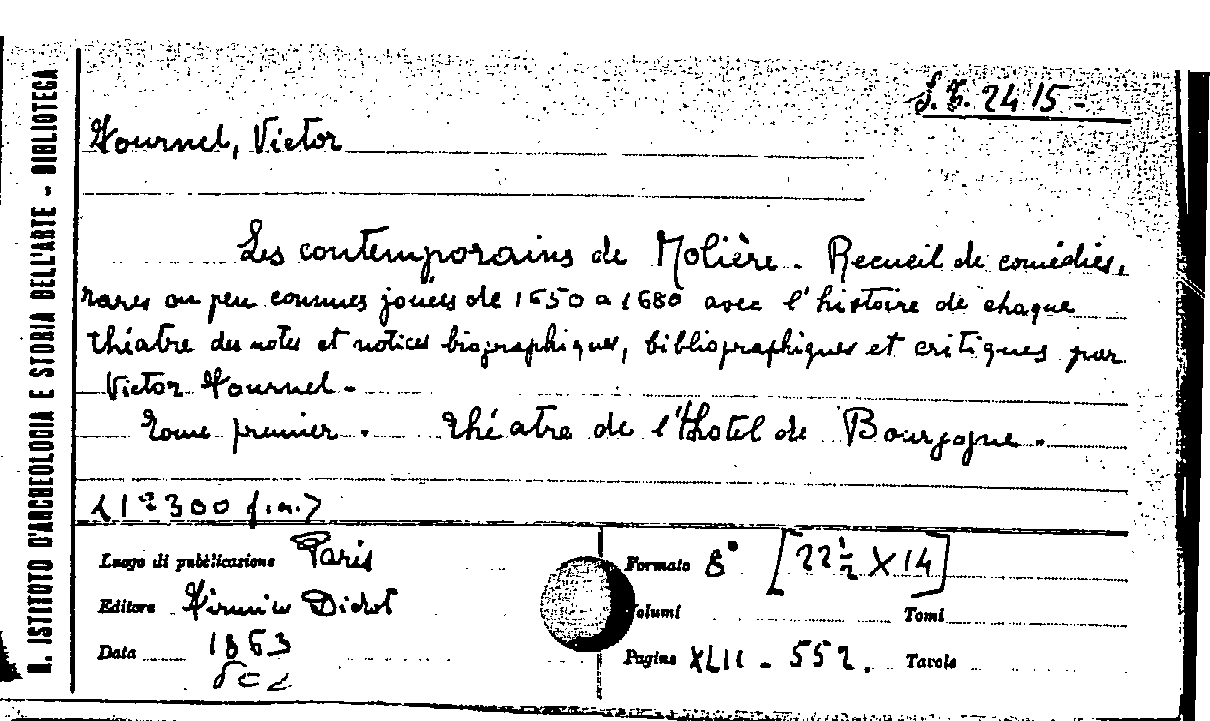 R. ISTITUTO D'ARCHEOLOGIA E STORIA DELL'ARTE - BIBLIOTECA
S. T. 2415 -
Fournel, Victor
Les contemporains de Molière. Recueil de comédies,
rares ou peu connues jouées de 1650 a 1680 avec l'histoire de chaque
théatre des notes et notices biographiques, bibliographiques et critiques par
Victor Fournel.
Tome premier. Théatre de l'Hotel de Bourgogne.
Luogo di pubblicazione Paris
Editore Firmin Didot
Data 1863
Formato 8° [22 1/2 X 14]
Volumi Tomi
Pagine XLII - 552. Tavole